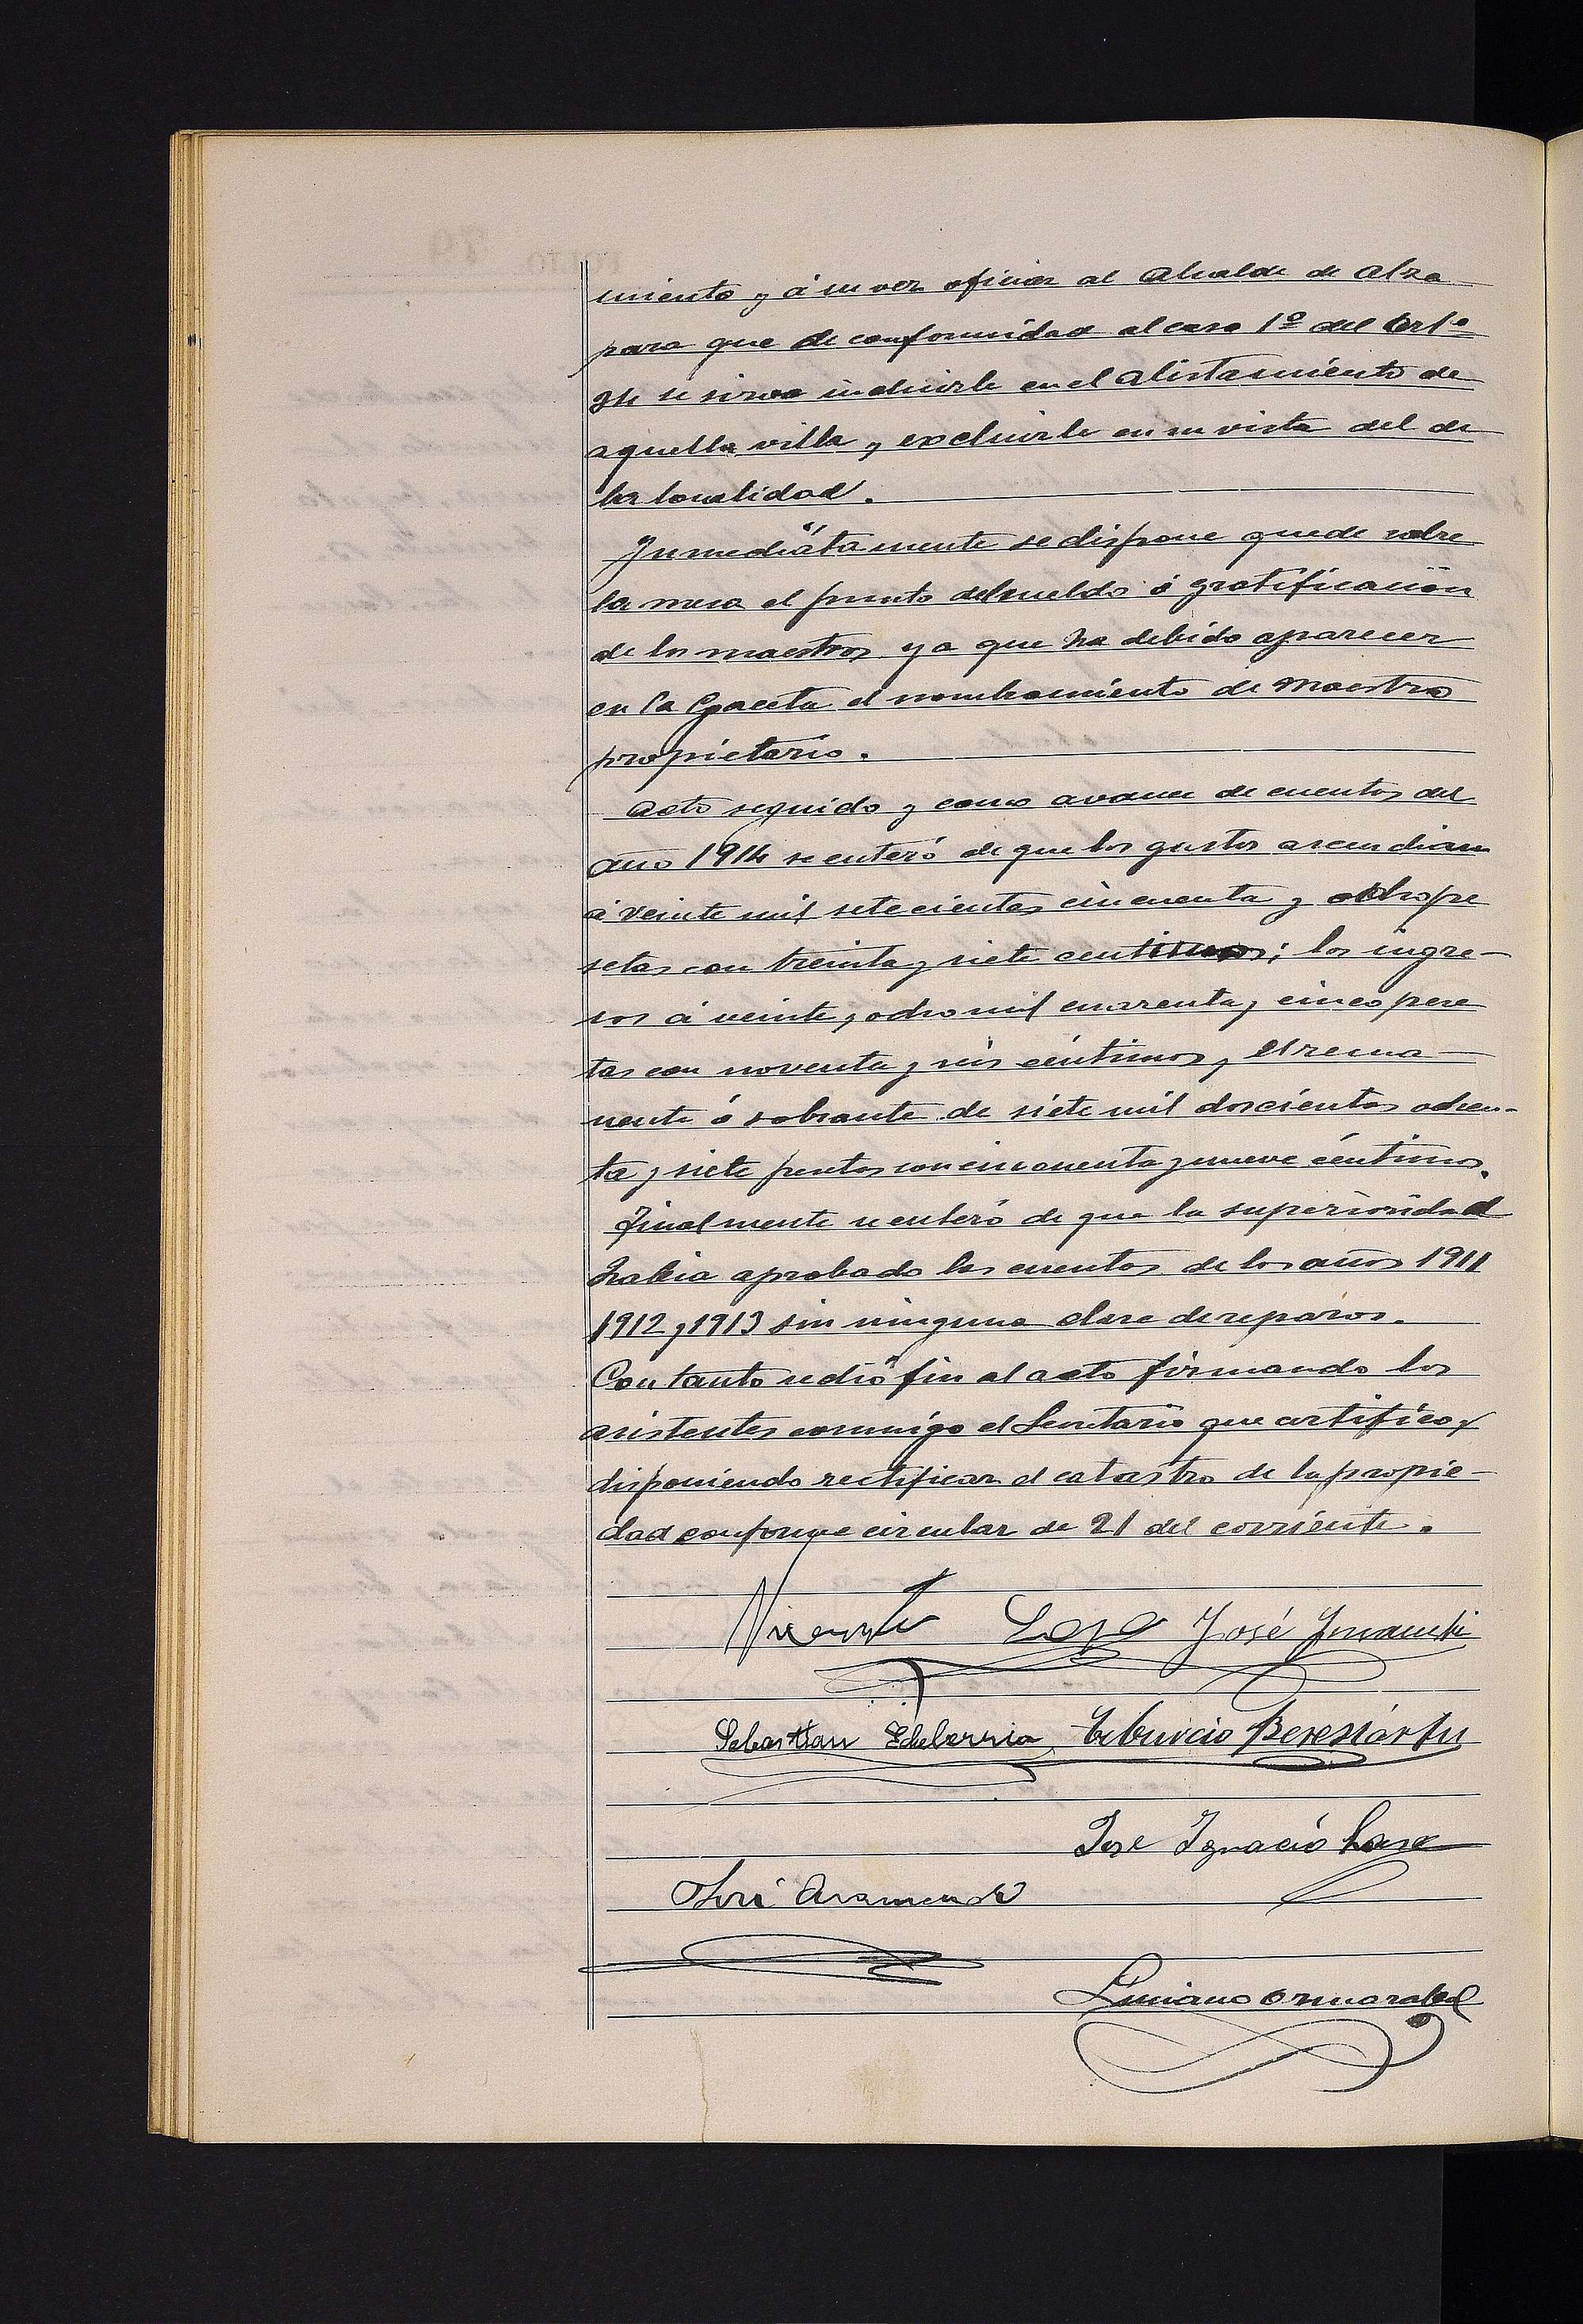 miento y á su vez oficiar al Alcalde de Alza
para que de conformidad al caso 1º del Artº
34 se sirva incluirle en el alistamiento de
aquella villa y excluirle en su vista del de
la localidad.
Inmediatamente se dispone quede sobre
la mesa el punto del sueldo ó gratificación
de los maestros ya que ha debido aparecer
en la Gaceta el nombramiento de Maestro
propietario.
Acto seguido y como avance de cuentas del
año 1914 se enteró de que los gastos ascendian
á veinte mil setecientas cincuenta y ocho pe
setas con treinta y siete centimos; los ingre-
sos á veinte y ocho mil cuarenta y cinco pese
tas con noventa y seis céntimos y el rema-
nente ó sobrante de siete mil doscientas ochen-
ta y siete pesetas con cincuenta y nueve céntimos.
Finalmente se enteró de que la superioridad
habia aprobado las cuentas de los años 1911
1912 y 1913 sin ninguna clase de reparos.
Con tanto se dió fin al acto firmando los
asistentes conmigo el Secretario que certifico y
disponiendo rectificar el catastro de la propie-
dad conforme circular de 21 del corriente.
Vicente Lasa José
Sebastian Echeberria Tiburcio Beresiartu
Jose Ignacio Lasa
José Aramendi
Luciano Ormazabal